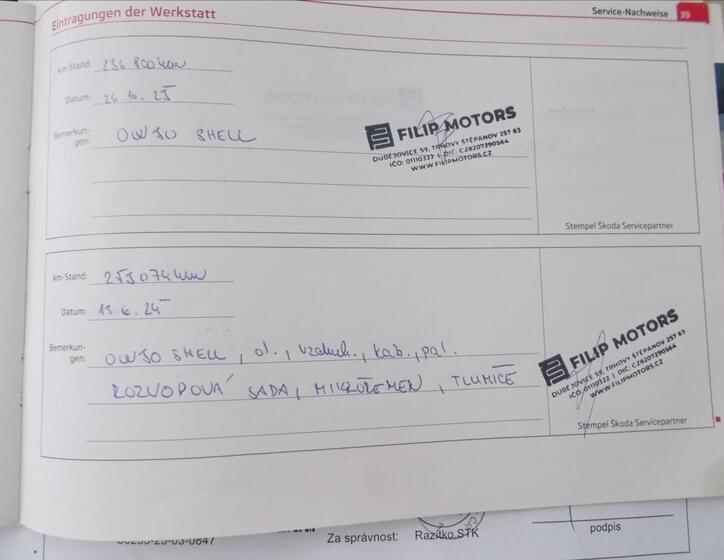 Eintragungen der Werkstatt
Service-Nachweise 39
km-Stand: 236 800 km
Datum: 26.10.25
Bemerkun-
gen: OW30 SHELL
FILIP MOTORS
DUBEJOVICE 59, TRHOVÝ ŠTĚPÁNOV 257 63
IČO: 01110322 | DIČ: CZ8207290564
WWW.FILIPMOTORS.CZ
Stempel Škoda Servicepartner
km-Stand: 253 074 km
Datum: 13.6.25
Bemerkun-
gen: OW30 SHELL, ol., vzduch., kab., pal.
ROZVODOVÁ SADA, MIKROŘEMEN, TLUMIČE
FILIP MOTORS
DUBEJOVICE 59, TRHOVÝ ŠTĚPÁNOV 257 63
IČO: 01110322 | DIČ: CZ8207290564
WWW.FILIPMOTORS.CZ
Stempel Škoda Servicepartner
Za správnost: Razítko STK
podpis